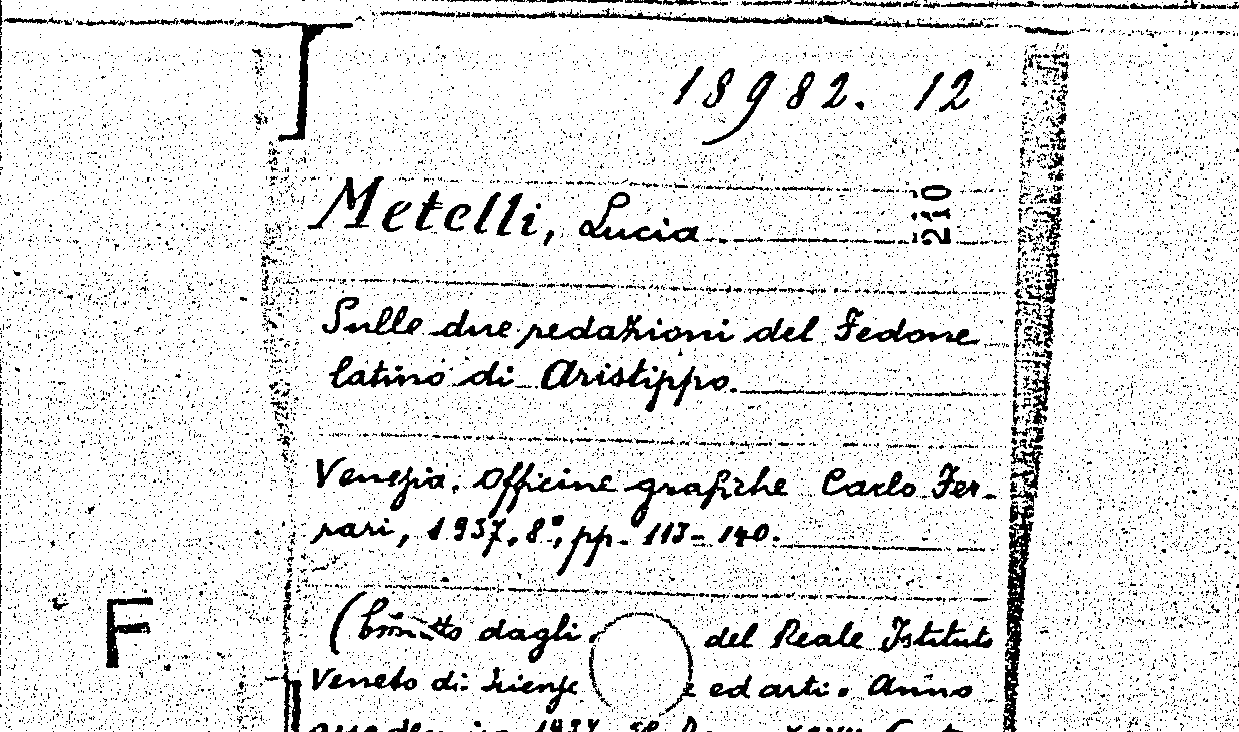 18982. 12
Metelli, Lucia
210
Sulle due redazioni del Fedone
latino di Aristippo.
Venezia. Officine grafiche Carlo Fer-
rari, 1937. 8°, pp. 113-140.
F
( dagli del Reale Istituto
Veneto di ed arti. Anno
1937